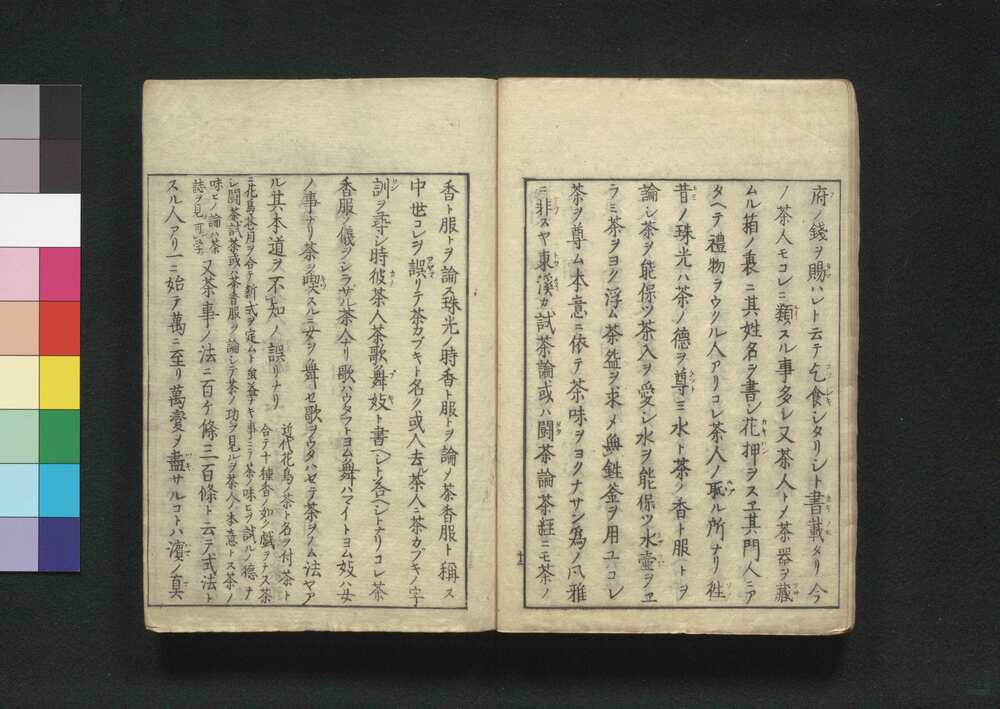 府ノ錢ヲ賜ハレト云テ乞食シタリシト書載タリ今
ノ茶人モコレニ類スル事多シ又茶人トノ茶器ヲ藏
ムル箱ノ裏ニ其姓名ヲ書シ花押ヲスヱ其門人ニア
タヘテ禮物ヲウクル人アリコレ茶人ノ恥ル所ナリ徃
昔ノ珠光ハ茶ノ德ヲ尊ミ水ト茶ノ香ト服トヲ
論シ茶ヲ能保ツ茶入ヲ愛シ水ヲ能保ツ水壷ヲヱ
ラミ茶ヲヨク浮ム茶盌ヲ求メ無銼釜ヲ用ユコレ
茶ヲ尊ム本意ニ依テ茶味ヲヨクナサン爲ノ風雅
ニ非スヤ東溪カ試茶論或ハ鬪茶論茶經ニモ茶ノ
香ト服トヲ論ス珠光ノ時香ト服トヲ論ノ茶香服ト稱ス
中世コレヲ誤リテ茶カブキト名ク或人去茶人ニ茶カブキノ字
訓ヲ尋シ時彼茶人茶歌舞妓ト書ヘシト答ヘシトナリコレ茶
香服ノ儀ヲシラザル茶人ナリ歌ハウタフトヨム舞ハマイトヨム妓ハ女
ノ事ナリ茶ヲ喫スルニ女ヲ舞セ歌ヲウタハセテ茶ヲノム法ヤア
ル其本道ヲ不知ノ誤リナリ 近代花鳥ノ茶ト名ヲ付茶ト 合テ十種香ノ如ク戲ヲナス茶
ニ花鳥茶月ヲ合テ新式ヲ定ムト雖益ナキ事ニテ茶ノ味ヒヲ試ルノ德ナ
シ鬪茶試茶或ハ茶香服ヲノ論シテ茶ノ功ヲ見ルヲ茶人ノ本意トス茶ノ
味ヒノ論ハ茶
誌ヲ見可学 又茶事ノ法ニ百ケ條三百條ト云テ式法ト
スル人アリ一ニ始テ萬ニ至リ萬變ヲ盡サルコトハ濱ノ真